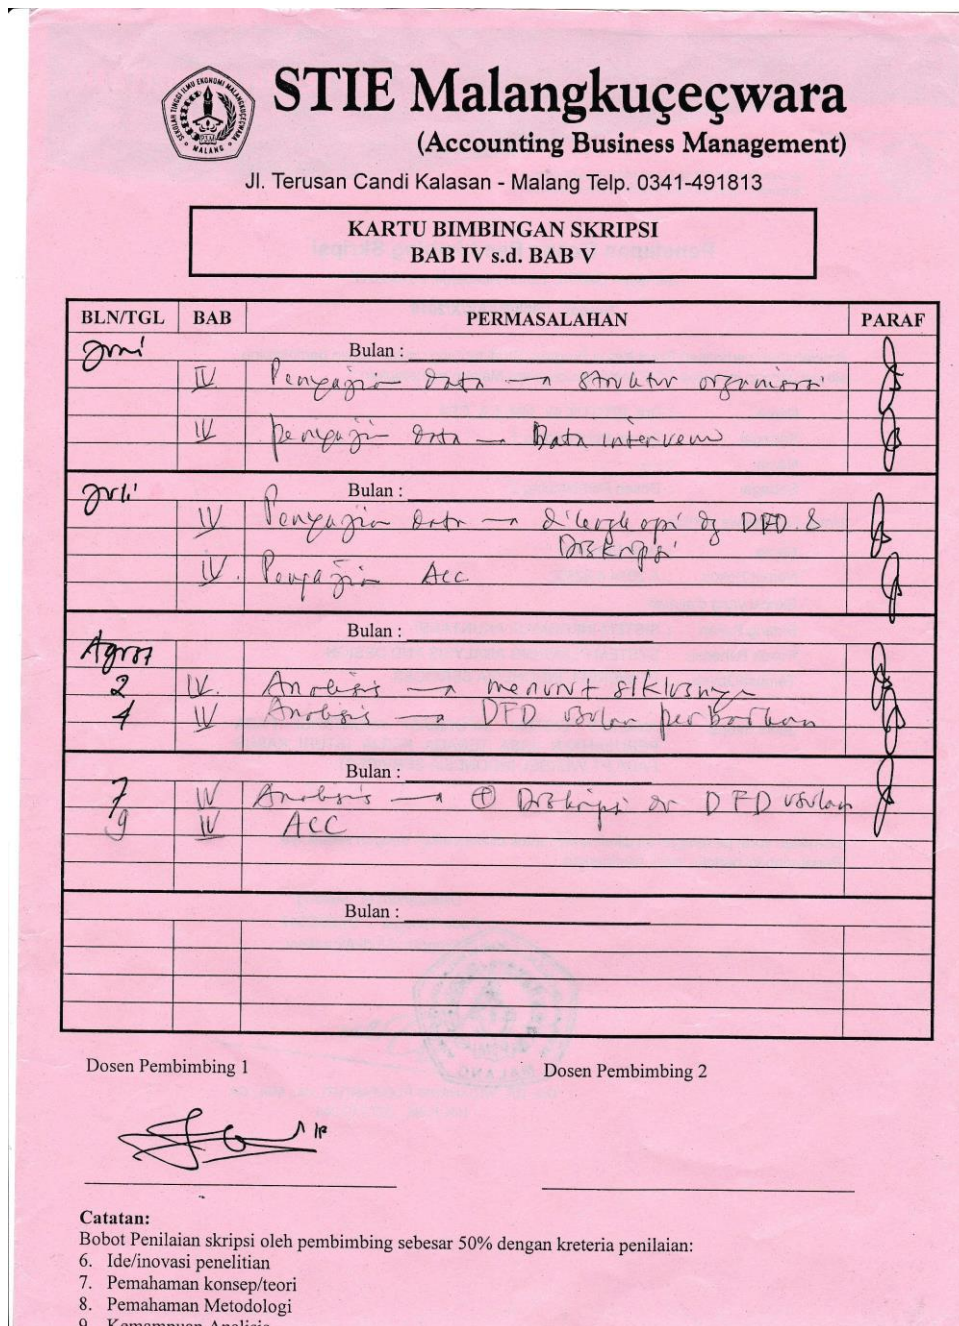 STIE Malangkuçeçwara
(Accounting Business Management)
SEKOLAH TINGGI ILMU EKONOMI MALANGKUÇEÇWARA
MALANG
Jl. Terusan Candi Kalasan - Malang Telp. 0341-491813
KARTU BIMBINGAN SKRIPSI
BAB IV s.d. BAB V
BLN/TGL BAB PERMASALAHAN PARAF
Juni Bulan :
IV Penyajian data → Struktur organisasi
IV penyajian data → Data interview
Juli Bulan :
IV Penyajian data → dilengkapi dg DFD &
Diskripsi
IV. Penyajian Acc
Bulan :
Agust
2 IV. Analisis → menurut siklusnya
4 IV Analisis → DFD usulan perbaikan
Bulan :
7 IV Analisis → + Diskripsi dr DFD usulan
9 IV ACC
Bulan :
Dosen Pembimbing 1 Dosen Pembimbing 2
Catatan:
Bobot Penilaian skripsi oleh pembimbing sebesar 50% dengan kreteria penilaian:
6. Ide/inovasi penelitian
7. Pemahaman konsep/teori
8. Pemahaman Metodologi
9. Kemampuan Analisis